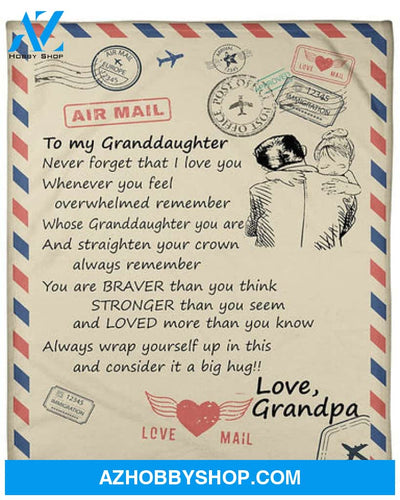 AZ
HOBBY SHOP
AIR MAIL
EUROPE
12345
LOVE MAIL
APPROVED
POST OFFICE
POST OFFICE
12345
IMMIGRATION
AIR MAIL
To my Granddaughter
Never forget that I love you
Whenever you feel
overwhelmed remember
Whose Granddaughter you are
And straighten your crown
always remember
You are BRAVER than you think
STRONGER than you seem
and LOVED more than you know
Always wrap yourself up in this
and consider it a big hug!!
Love,
Grandpa
12345
IMMIGRATION
LOVE MAIL
AZHOBBYSHOP.COM